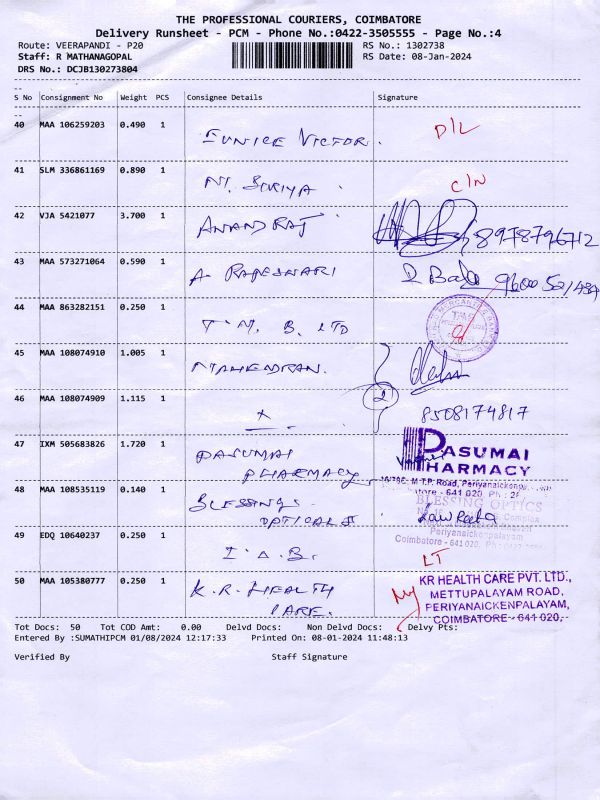 THE PROFESSIONAL COURIERS, COIMBATORE
Delivery Runsheet - PCM - Phone No.:0422-3505555 - Page No.:4
Route: VEERAPANDI - P20 RS No.: 1302738
Staff: R MATHANAGOPAL RS Date: 08-Jan-2024
DRS No.: DCJB130273804
S No Consignment No Weight PCS Consignee Details Signature
40 MAA 106259203 0.490 1 EUNICE VICTOR. D/L
41 SLM 336861169 0.890 1 NT. SURIYA C/N
42 VJA 5421077 3.700 1 ANANDRAJ 8978796712
43 MAA 573271064 0.590 1 A RAJESWARI
44 MAA 863282151 0.250 1 T. M. B. LTD
45 MAA 108074910 1.005 1 MAHENDRAN.
46 MAA 108074909 1.115 1 2 8508174817
47 IXM 505683826 1.720 1 PASUMAI PHARMACY PASUMAI PHARMACY
M.T.P. Road,
48 MAA 108535119 0.140 1 BLESSINGS OPTICALS BLESSING OPTICS
Periyanaickenpalayam
Coimbatore - 641 020,
49 EDQ 10640237 0.250 1 I.O.B. LT
50 MAA 105380777 0.250 1 K.R. HEALTH CARE. KR HEALTH CARE PVT. LTD.,
METTUPALAYAM ROAD,
PERIYANAICKENPALAYAM,
COIMBATORE - 641 020.
Tot Docs: 50 Tot COD Amt: 0.00 Delvd Docs: Non Delvd Docs: Delvy Pts:
Entered By :SUMATHIPCM 01/08/2024 12:17:33 Printed On: 08-01-2024 11:48:13
Verified By Staff Signature